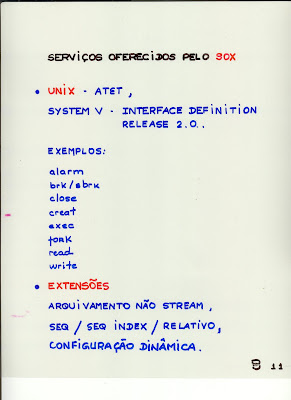 SERVIÇOS OFERECIDOS PELO SOX
• UNIX - AT&T,
SYSTEM V - INTERFACE DEFINITION
RELEASE 2.0..
EXEMPLOS:
alarm
brk/sbrk
close
creat
exec
fork
read
write
• EXTENSÕES
ARQUIVAMENTO NÃO STREAM,
SEQ / SEQ INDEX / RELATIVO,
CONFIGURAÇÃO DINÂMICA.
11